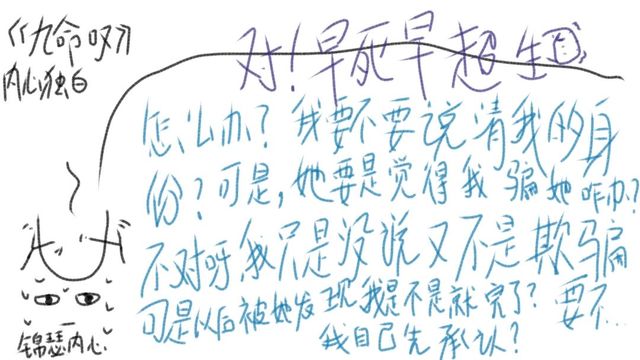 《九命吸》
内心独白
对！早死早超生
怎么办？我要不要说清我的身
份？可是，她要是觉得我骗她咋办？
不对呀，我只是没说又不是欺骗
可是以后被她发现我是不是就完了？要不…
我自己先承认？
锦瑟内心